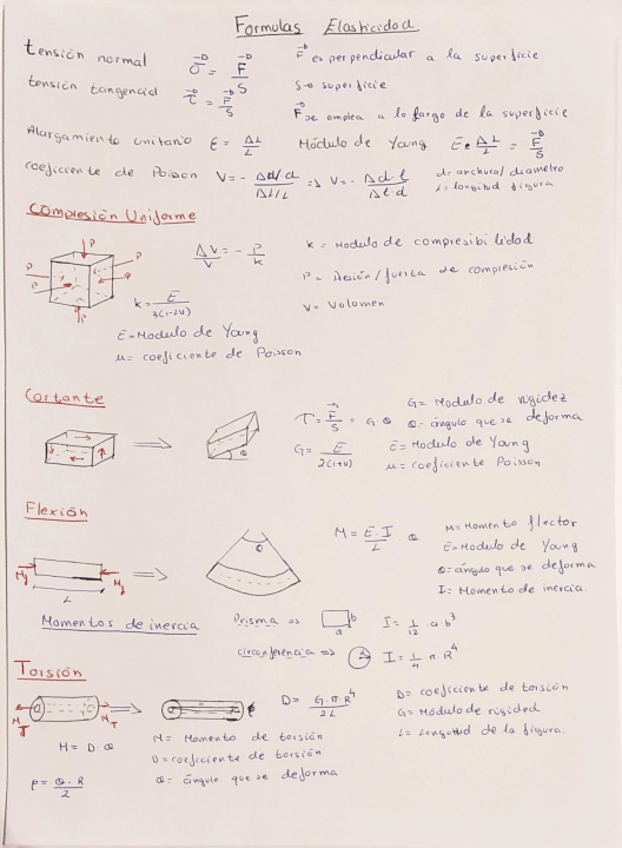 Formulas Elasticidad
tensión normal σ⃗ = F⃗/S F⃗ es perpendicular a la superficie
tensión tangencial τ⃗ = F⃗/S S→ superficie
F⃗ se emplea a lo largo de la superficie
Alargamiento unitario ε = ΔL/L Módulo de Yang E·ΔL/L = F⃗/S
coeficiente de Poison V = - Δd/d / ΔL/L => V = - Δd·l/Δl·d d = anchura/diametro
L = longitud figura
Compresión Uniforme
ΔV/V = - P/k k = Modulo de compresibilidad
P P P P P P
P = Presión/fuerza de compresión
k = E/3(1-2υ) V = Volumen
E = Modulo de Yang
μ = coeficiente de Poisson
Cortante
τ = F⃗/S = G·θ G = Modulo de rigidez
θ = ángulo que se deforma
G = E/2(1+υ) E = Modulo de Yang
μ = coeficiente Poisson
θ
Flexión
M = E·I/L · θ M = Momento flector
E = Modulo de Yang
θ = ángulo que se deforma
I = Momento de inercia.
Mf Mf L θ
Momentos de inercia Prisma => a b I = 1/12 · a·b³
circunferencia => R I = 1/4 π·R⁴
Torsión
MT MT D = G·π·R⁴/2L D = coeficiente de torsión
G = Módulo de rigided
L = Longitud de la figura.
M = D·θ M = Momento de torsión
D = coeficiente de torsión
θ = ángulo que se deforma
φ = θ·R/2